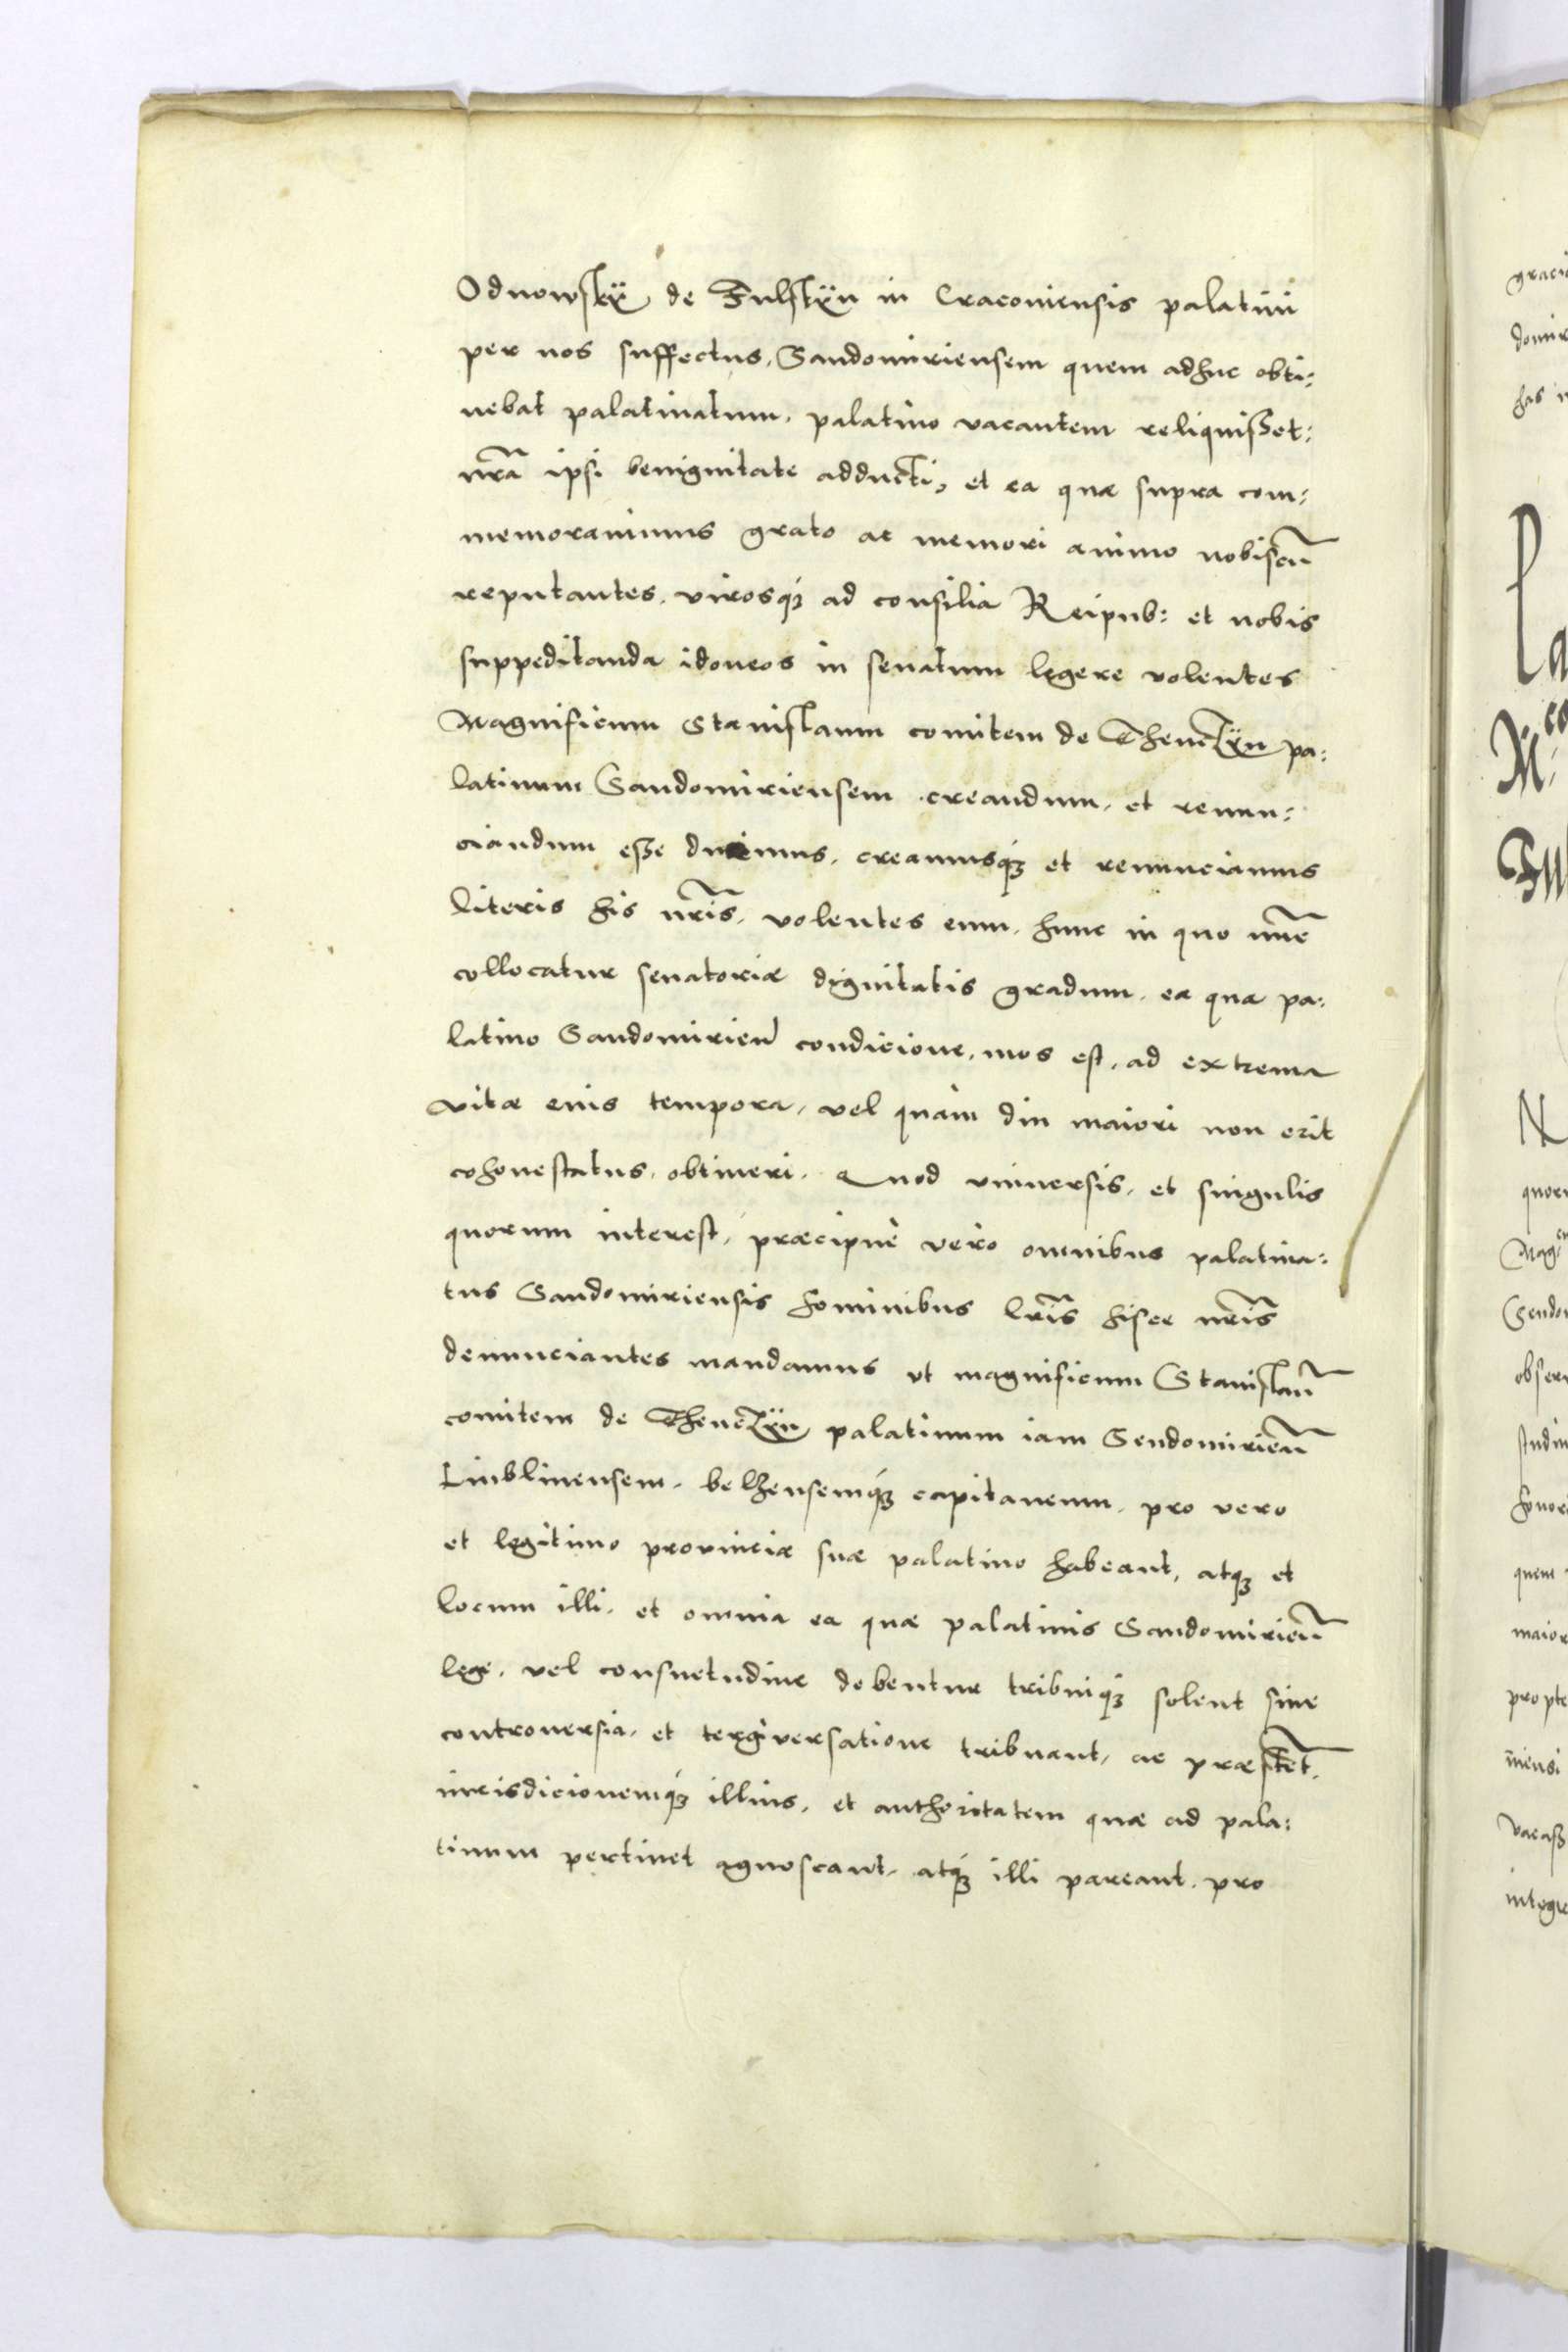 Odnowskÿ de Fulstÿn in Cracoviensis palatini
per nos suffectus, Sandomiriensem quem adhuc obti:
nebat palatinatum, palatino vacantem reliquisset:
nr̃a ipsi benignitate adducti, et ea quæ supra com:
memoravimus grato ac memori animo nobiscũ
reputantes, virosq́ꝫ ad consilia Reipub: et nobis
suppeditanda idoneos in senatum legere volentes
Magnificum Stanislaum comitem de Thenczÿn pa:
latinum Sandomiriensem creandum, et renun:
ciandum esse duximus, creamusq́ꝫ et renunciamus
literis his nr̃is, volentes eum, hunc in quo nunc
collocatur senatoriæ dignitatis gradum, ea quæ pa:
latino Sandomirien̄ condicione, mos est, ad extrema
vitæ eius tempora, vel quam diu maiori non erit
cohonestatus, obtineri. Quod universis, et singulis
quorum interest, præcipuè vero omnibus palatina:
tus Sandomiriensis hominibus lr̃is hisce nr̃is
denunciantes mandamus ut magnificum Stanislaũ
comitem de Thenczÿn palatinum iam Sendomirien̄
Lublinensem, belzensemq́ꝫ capitaneum, pro vero
et legitimo provinciæ suæ palatino habeant, atqꝫ et
locum illi, et omnia ea quæ palatinis Sandomirien̄
lege, vel consuetudine debentur tribuiq́ꝫ solent sine
controversia, et tergiversatione tribuant, ac præstẽt,
iurisdicionemq́ꝫ illius, et authoritatem quæ ad pala:
tinum pertinet agnoscant, atq́ꝫ illi pareant, pro